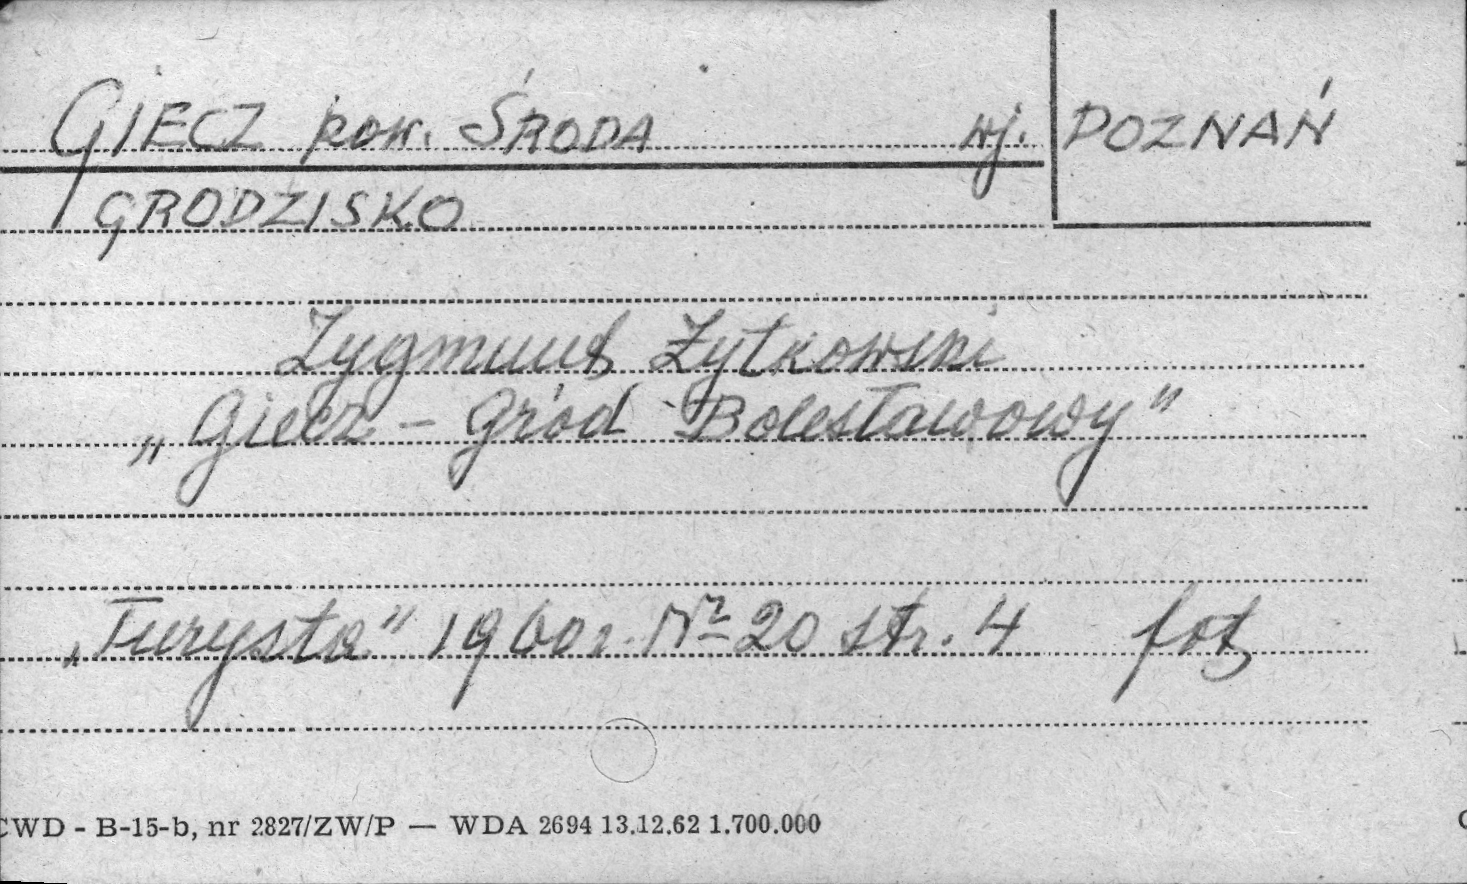 GIECZ pow. ŚRODA wj. POZNAŃ
GRODZISKO
Zygmunt Żytkowski
„Giecz – Gród Bolesławowy"
„Turysta" 1960 r. Nr 20 str. 4 fot
CWD - B-15-b, nr 2827/ZW/P — WDA 2694 13.12.62 1.700.000